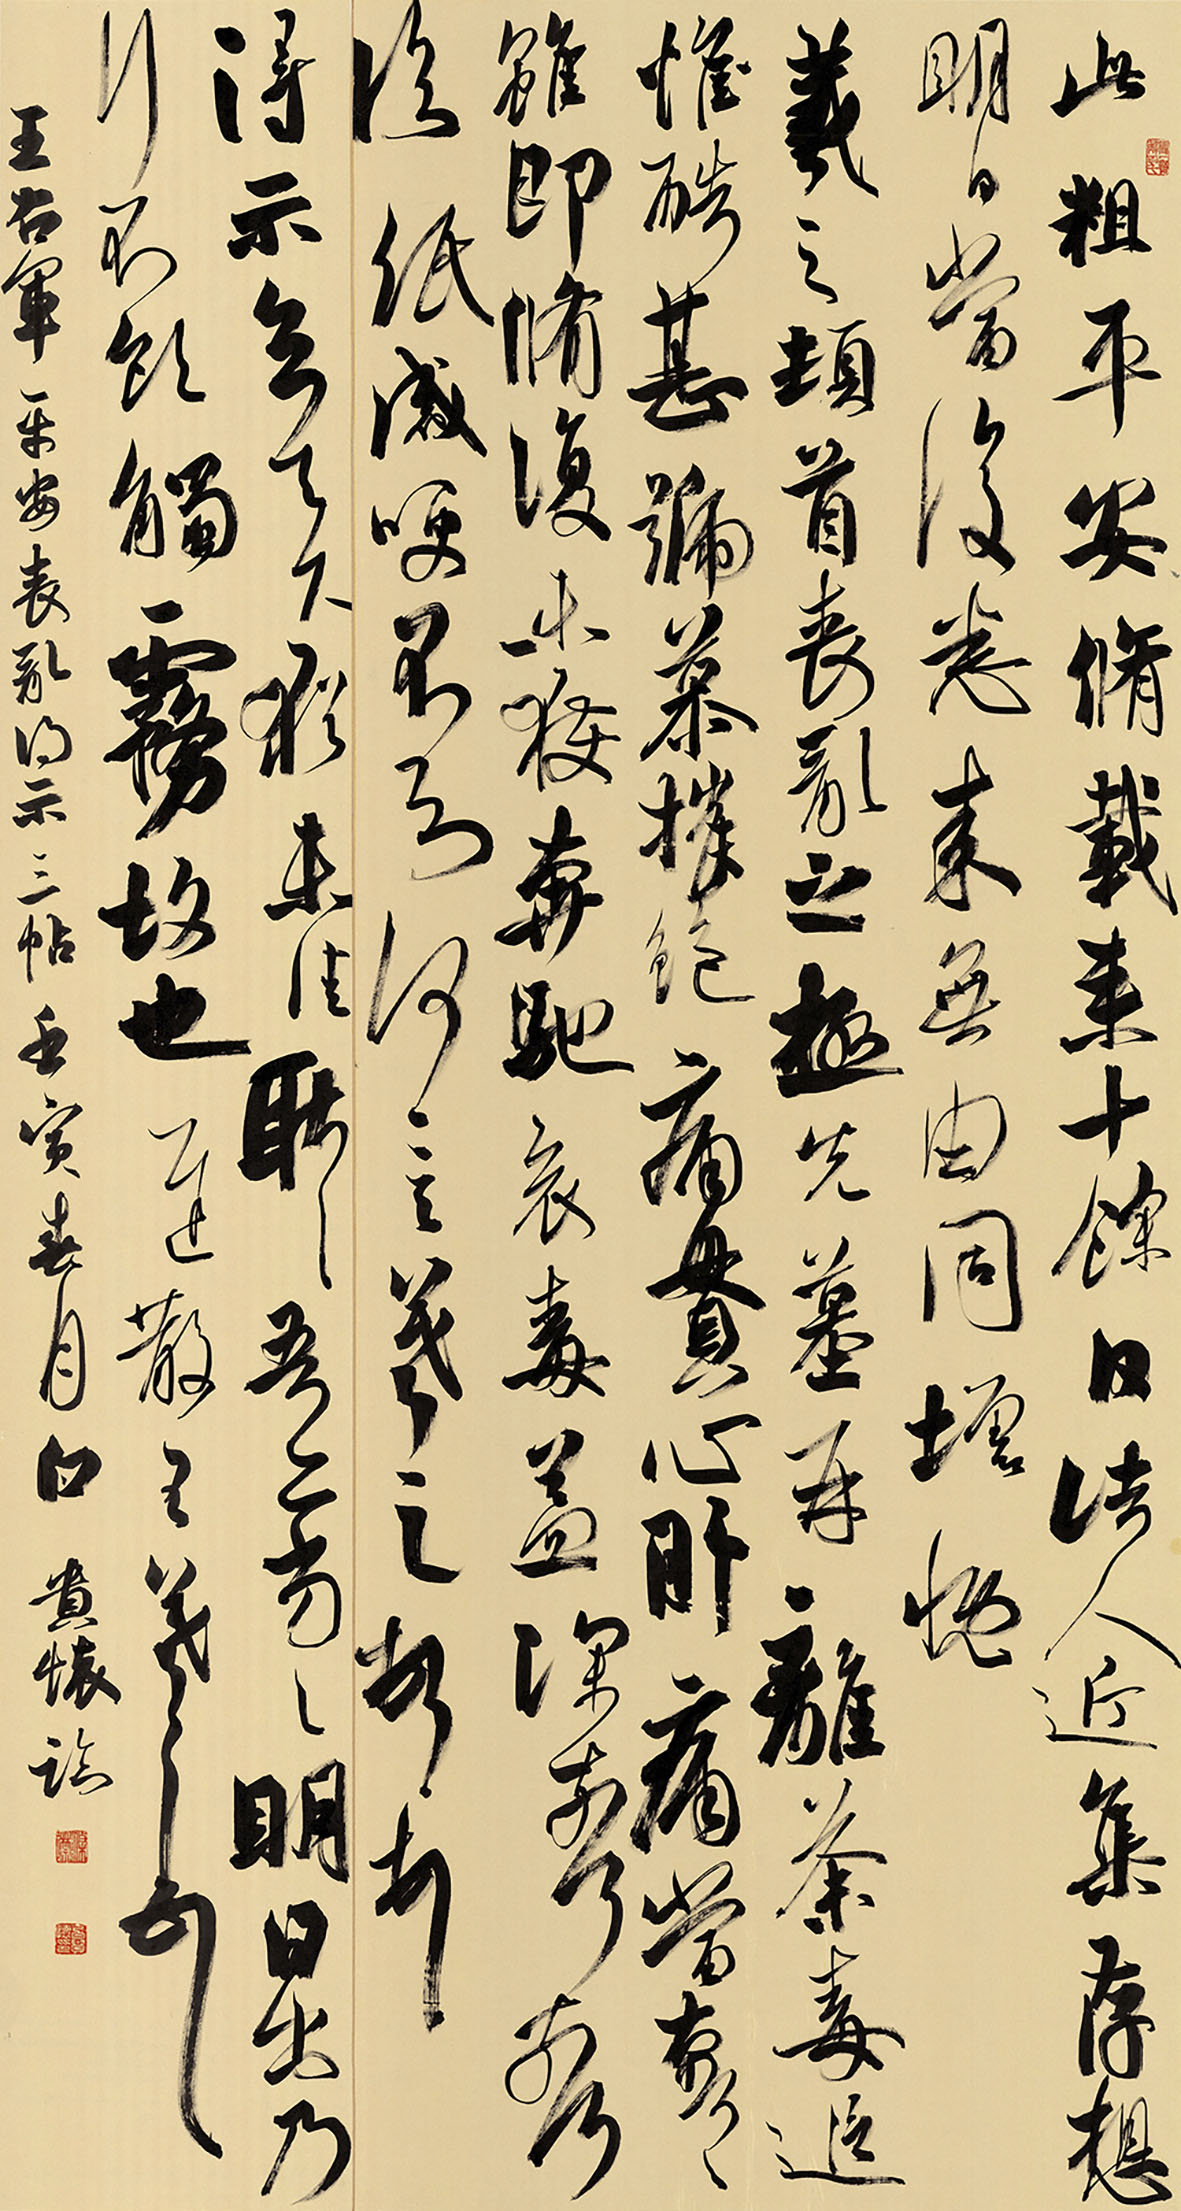 此粗平安脩載来十餘日诸人近集存想
明日當復悉来無由同增慨
羲之頓首喪亂之極先墓再離荼毒追
惟酷甚號慕摧絶痛貫心肝痛當奈何奈何
雖即脩復未獲奔馳哀毒益深奈何奈何
臨紙感哽不知何言羲之頓首頓首
得示知足下猶未佳耿耿吾亦劣劣明日出乃
行不欲觸霧故也迟散王羲之頓首
王右軍平安喪亂得示三帖壬寅春月白黄懷